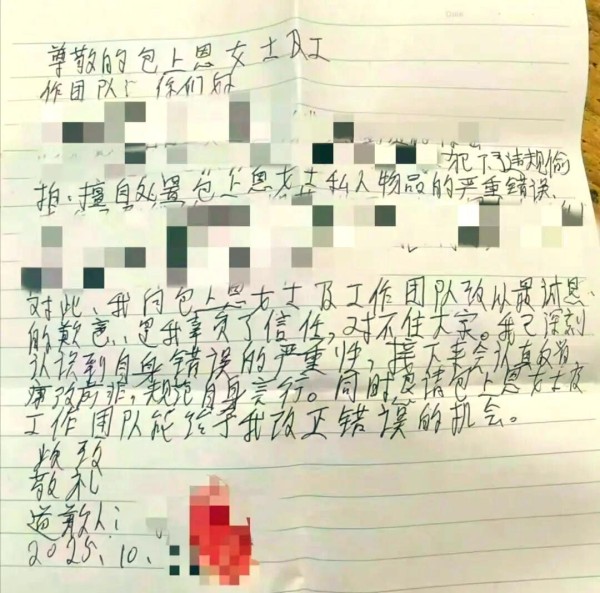 尊敬的包上恩女士及工
作团队: 你们好
犯下了违规偷
拍、擅自处置包上恩女士私人物品的严重错误、
对此、我向包上恩女士及工作团队致以最诚恳
的歉意、是我辜负了信任,对不住大家。我已深刻
认识到自身错误的严重性,接下来会认真反省
痛改前非,规范自身言行。同时恳请包上恩女士及
工作团队能给予我改正错误的机会。
此致
敬礼
道歉人:
2025、10、